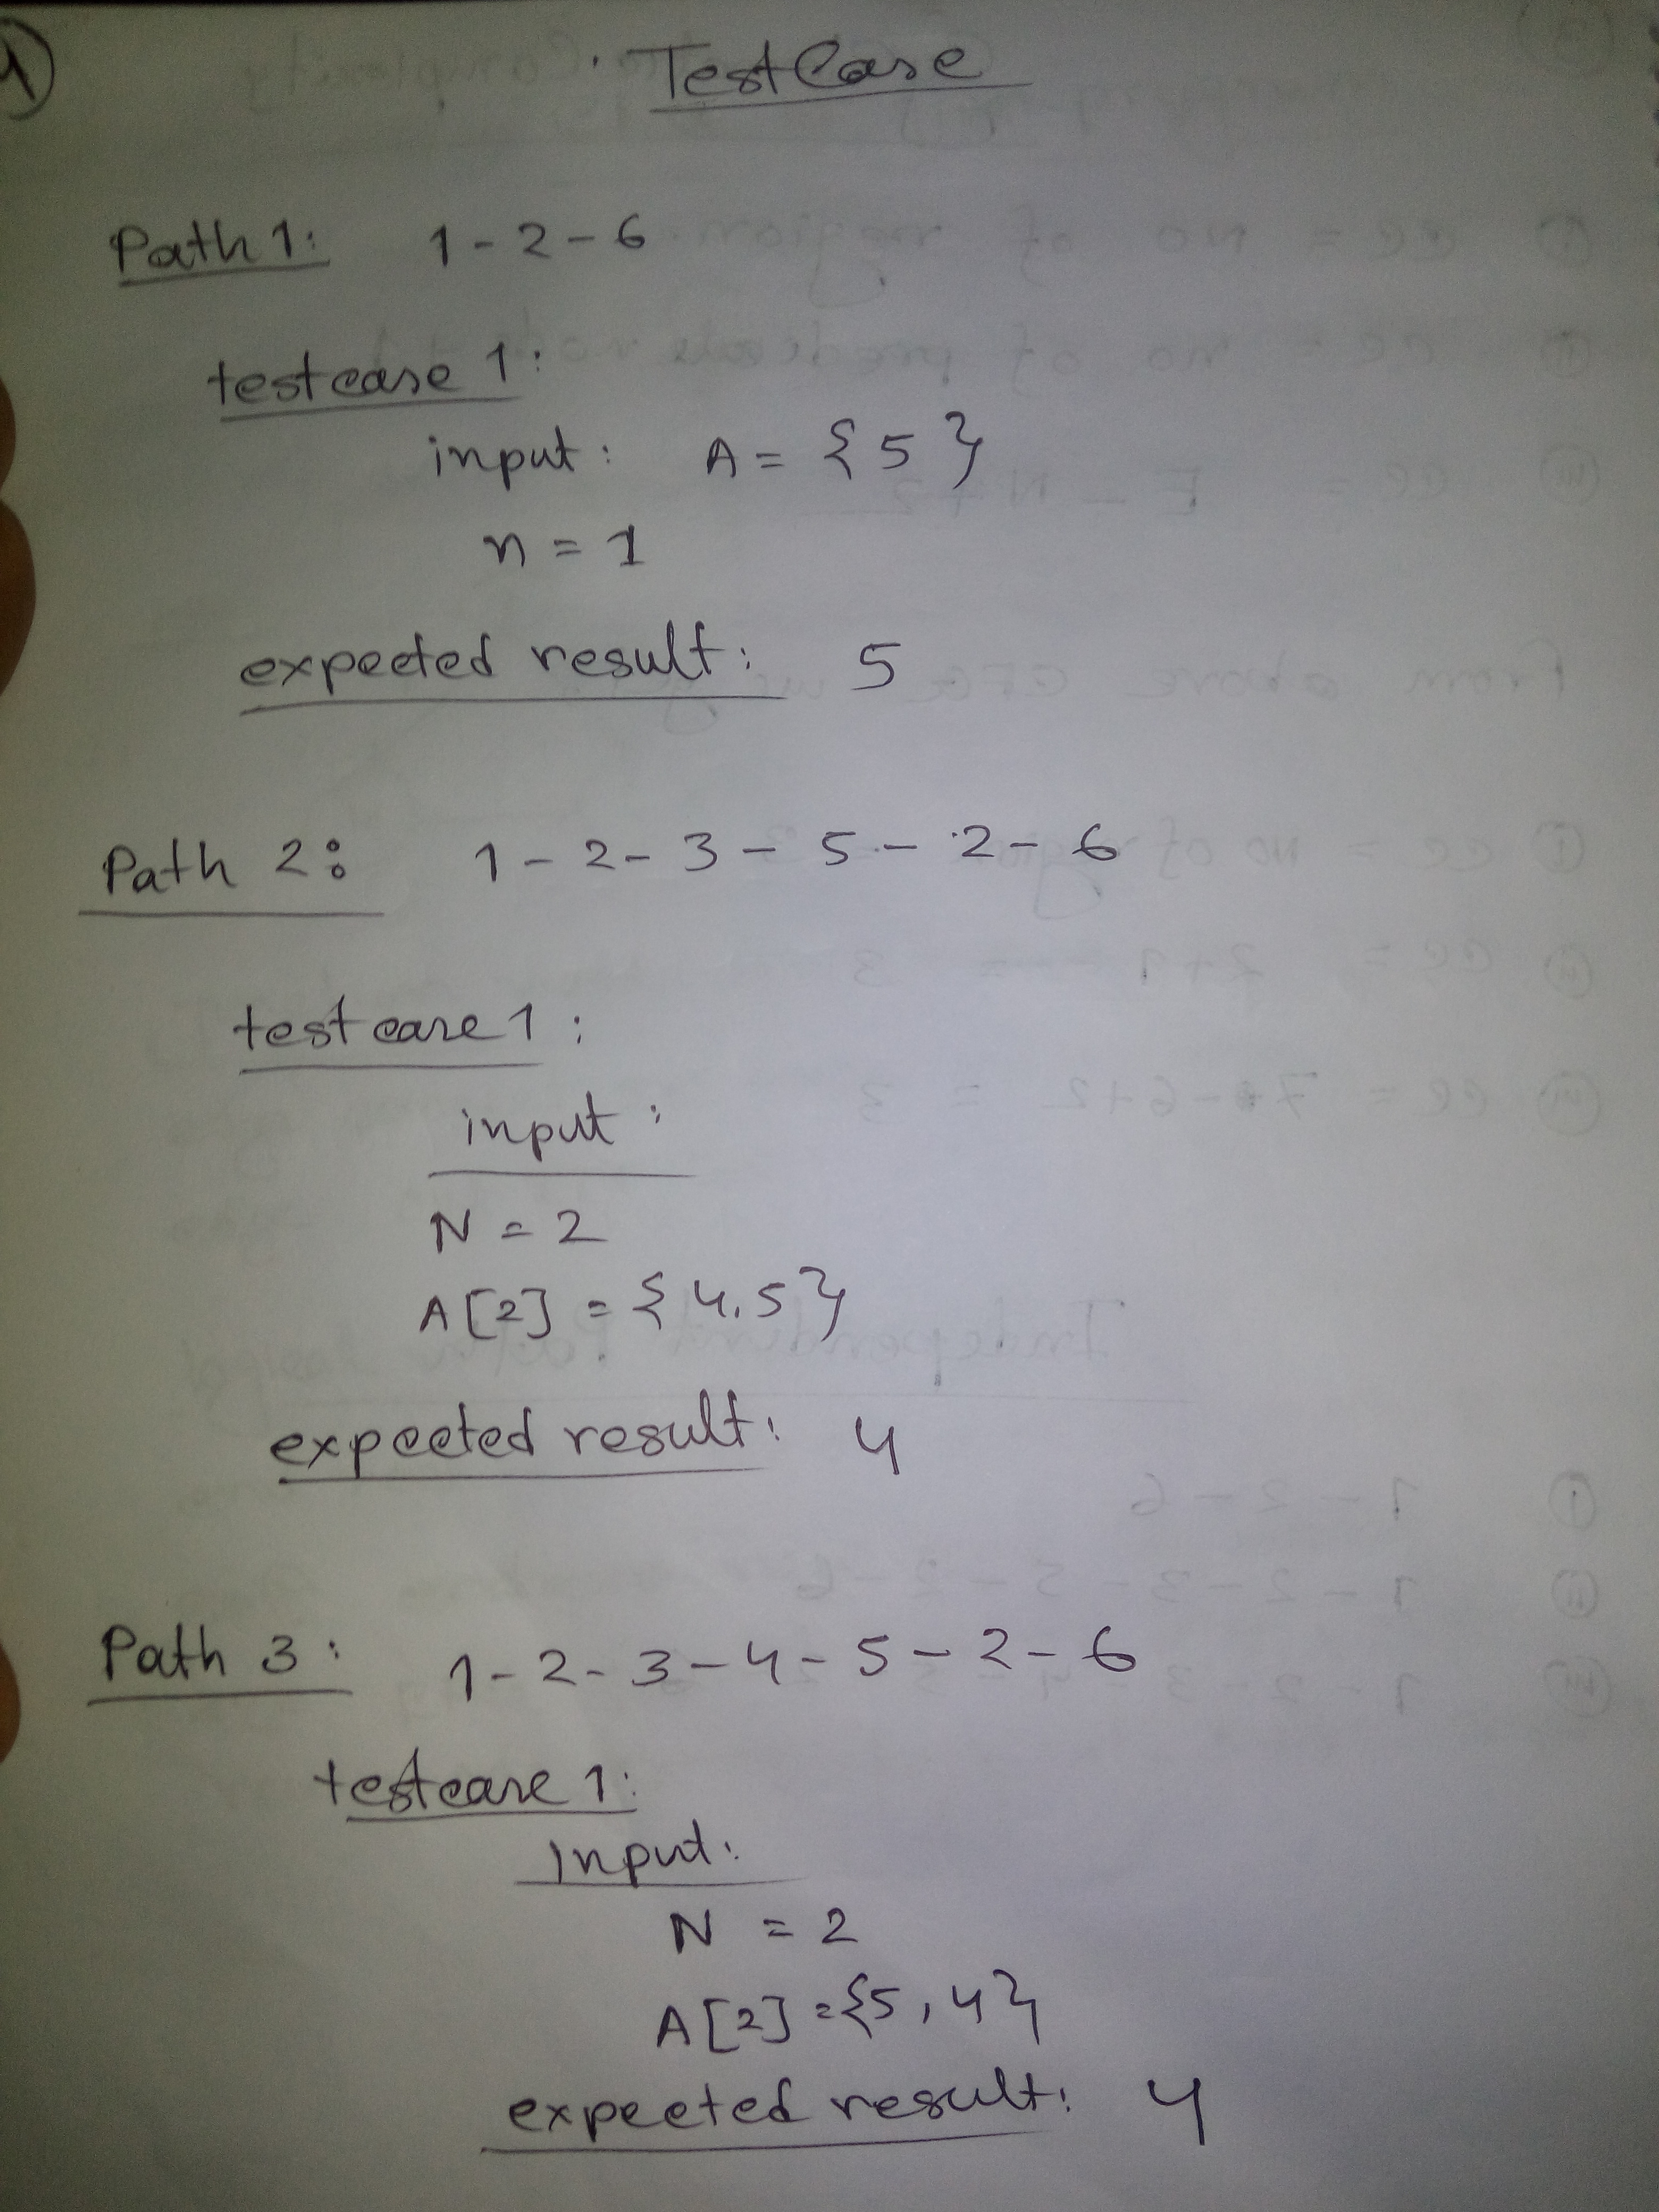 4
Test Case
Path 1: 1 - 2 - 6
test case 1:
input: A = {5}
n = 1
expected result: 5
Path 2: 1 - 2 - 3 - 5 - 2 - 6
test case 1:
input:
N = 2
A[2] = {4,5}
expected result: 4
Path 3: 1 - 2 - 3 - 4 - 5 - 2 - 6
test case 1:
Input:
N = 2
A[2] = {5,4}
expected result: 4